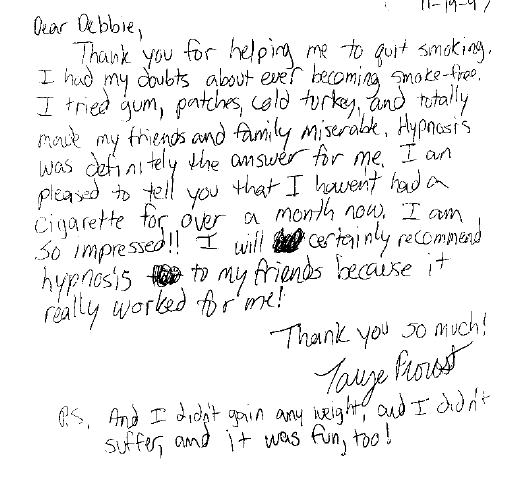 11-19-97
Dear Debbie,
Thank you for helping me to quit smoking.
I had my doubts about ever becoming smoke-free.
I tried gum, patches, cold turkey, and totally
made my friends and family miserable. Hypnosis
was definitely the answer for me. I am
pleased to tell you that I haven't had a
cigarette for over a month now. I am
so impressed!! I will certainly recommend
hypnosis to my friends because it
really worked for me!
Thank you so much!
P.S. And I didn't gain any weight, and I didn't
suffer, and it was fun, too!